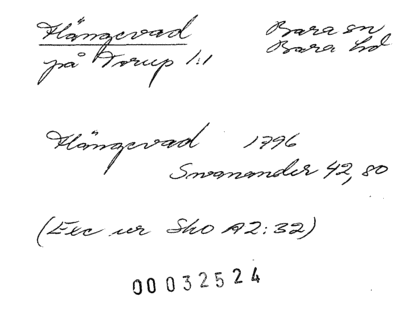 Hängevad Bara sn
på Torup 1:1 Bara hd
Hängevad 1796
Svanander 42, 80
(Exc ur Sko A2:32)
00032524